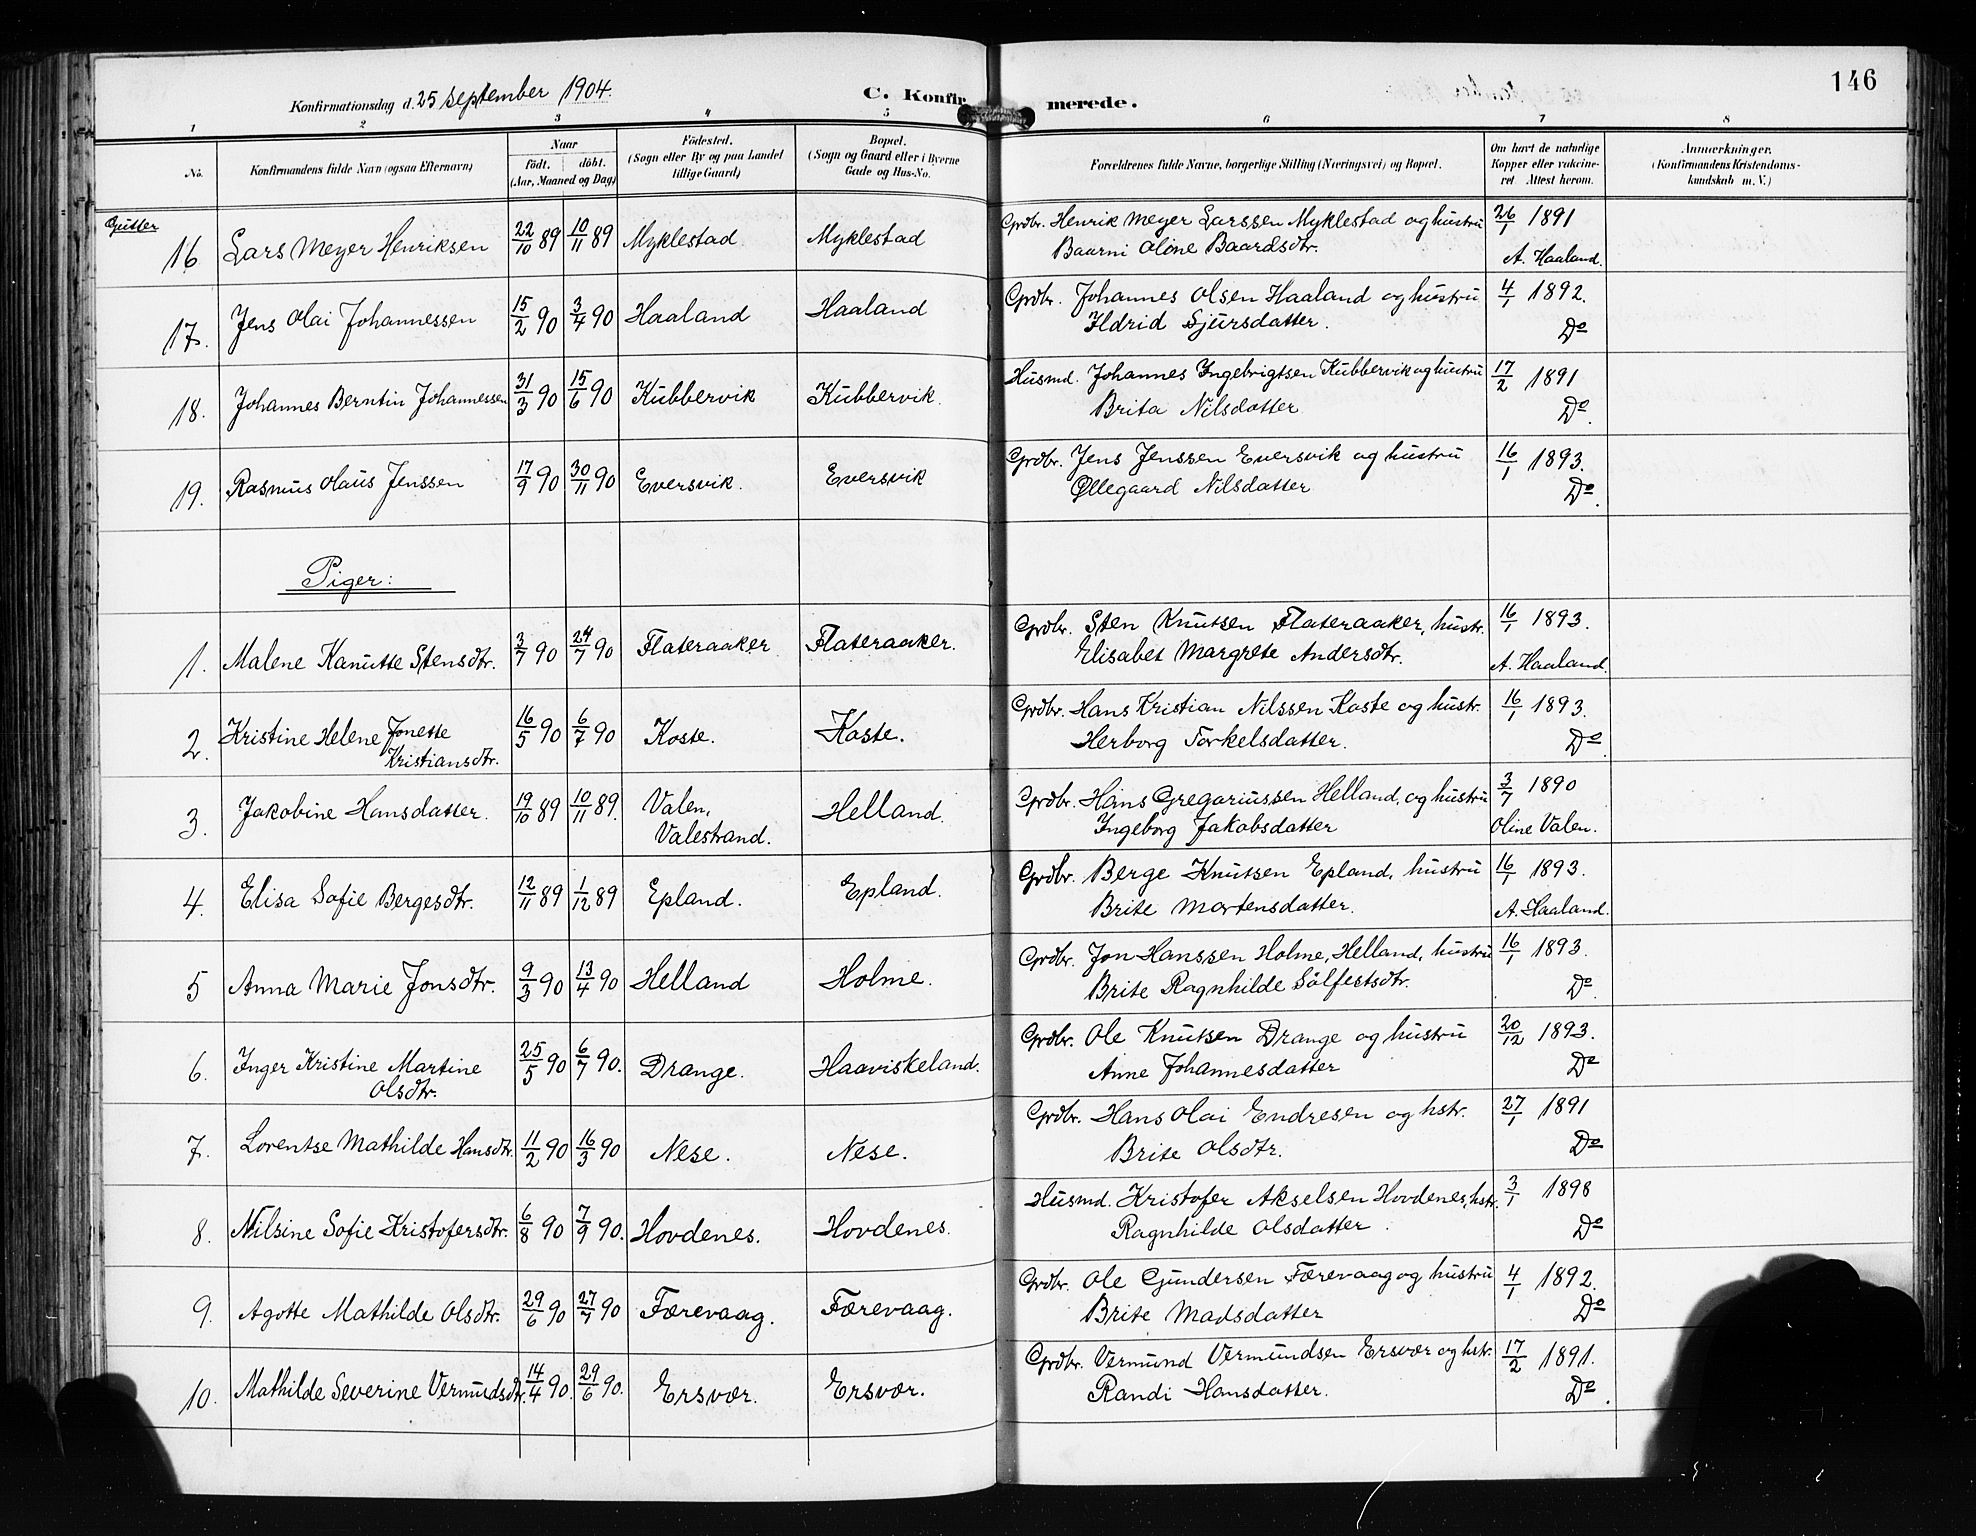 146
Konfirmationsdag d. 25 September 1904.
C. Konfirmerede.
1 2 3 4 5 6 7 8
No.
Konfirmandens fulde Navn (ogsaa Efternavn)
Naar
födt. döbt.
(Aar, Maaned og Dag)
Födested.
(Sogn eller By og paa Landet
tillige Gaard)
Bopæl.
(Sogn og Gaard eller i Byerne
Gade og Hus-No.
Forældrenes fulde Navne, borgerlige Stilling (Næringsvei) og Bopæl.
Om havt de naturlige
Kopper eller vaksine-
ret. Attest herom.
Anmerkninger.
(Konfirmandens Kristendoms-
kundskab m. V.)
Gutter
16 Lars Meyer Henriksen 22/10 89 10/11 89 Myklestad Myklestad Grdbr. Henrik Meyer Larssen Myklestad og hustru 26/1 1891
Baarni Oline Baardsdtr. A. Haaland.
17. Jens Olai Johannessen 15/2 90 3/4 90 Haaland Haaland Grdbr. Johannes Olsen Haaland og hustru 4/1 1892.
Ildrid Sjursdatter. Do
18. Johannes Berntin Johannessen 31/3 90 15/6 90 Kubbervik Kubbervik. Husmd. Johannes Ingebrigtsen Kubbervik og hustru 17/2 1891
Brita Nilsdatter Do
19. Rasmus Olaus Jenssen 17/9 90 30/11 90 Eversvik. Eversvik Grdbr. Jens Jenssen Eversvik og hustru 16/1 1893.
Øllegaard Nilsdatter Do.
Piger:
1. Malene Kanutte Stensdtr. 3/7 90 24/7 90 Flateraaker Flateraaker. Grdbr. Sten Knutsen Flateraaker, hustr. 16/1 1893.
Elisabet Margrete Andersdtr. A. Haaland.
2. Kristine Helene Jonette
Kristiansdtr. 16/5 90 6/7 90 Koste. Koste. Grdbr. Hans Kristian Nilssen Koste og hustr. 16/1 1893.
Herborg Torkelsdatter. Do
3. Jakobine Hansdatter. 19/10 89 10/11 89. Valen,
Valestrand. Helland. Grdbr. Hans Gregariussen Helland, og hustru 3/7 1890
Ingeborg Jakobsdatter Oline Valen.
4. Elisa Sofie Bergesdtr. 12/11 89 1/12 89 Epland. Epland. Grdbr. Berge Knutsen Epland, hustru 16/1 1893.
Brite Mortensdatter. A. Haaland.
5 Anna Marie Jonsdtr. 9/3 90 13/4 90 Helland Holme. Grdbr. Jon Hanssen Holme, Helland, hustru 16/1 1893.
Brite Ragnhilde Sölfestsdtr. Do
6. Inger Kristine Martine
Olsdtr. 25/5 90 6/7 90. Drange. Haaviskeland. Grdbr. Ole Knutsen Drange og hustru 20/12 1893.
Anne Johannesdatter Do
7. Lorentse Mathilde Hansdtr. 11/2 90 16/3 90 Nese. Nese. Grdbr. Hans Olai Endresen og hstr. 27/1 1891
Brite Olsdtr. Do
8. Nilsine Sofie Kristofersdtr. 6/8 90 7/9 90. Hovdenes. Hovdenes. Husmd. Kristofer Akselsen Hovdenes, hstr. 3/1 1898
Ragnhilde Olsdatter. Do
9. Agotte Mathilde Olsdtr. 29/6 90 27/7 90 Færevaag. Færevaag. Grdbr. Ole Gundersen Færevaag og hustru 4/1 1892.
Brite Madsdatter Do
10. Mathilde Severine Vermundsdtr. 14/4 90. 29/6 90. Ersvær. Ersvær. Grdbr. Vermund Vermundsen Ersvær og hstr. 17/2 1891.
Randi Hansdatter. Do.